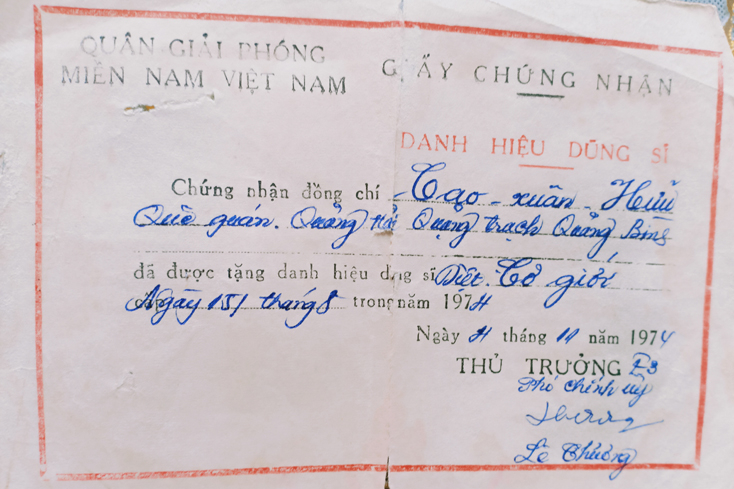 QUÂN GIẢI PHÓNG
MIỀN NAM VIỆT NAM
GIẤY CHỨNG NHẬN
DANH HIỆU DŨNG SĨ
Chứng nhận đồng chí Cao - xuân - Hữu
Quê quán. Quảng Hải Quảng trạch Quảng Bình
đã được tặng danh hiệu dũng sĩ Diệt Cơ giới
Ngày 15/ tháng 8 trong năm 1974
Ngày 4 tháng 11 năm 1974
THỦ TRƯỞNG E3
Phó chính ủy
Lê Thưởng